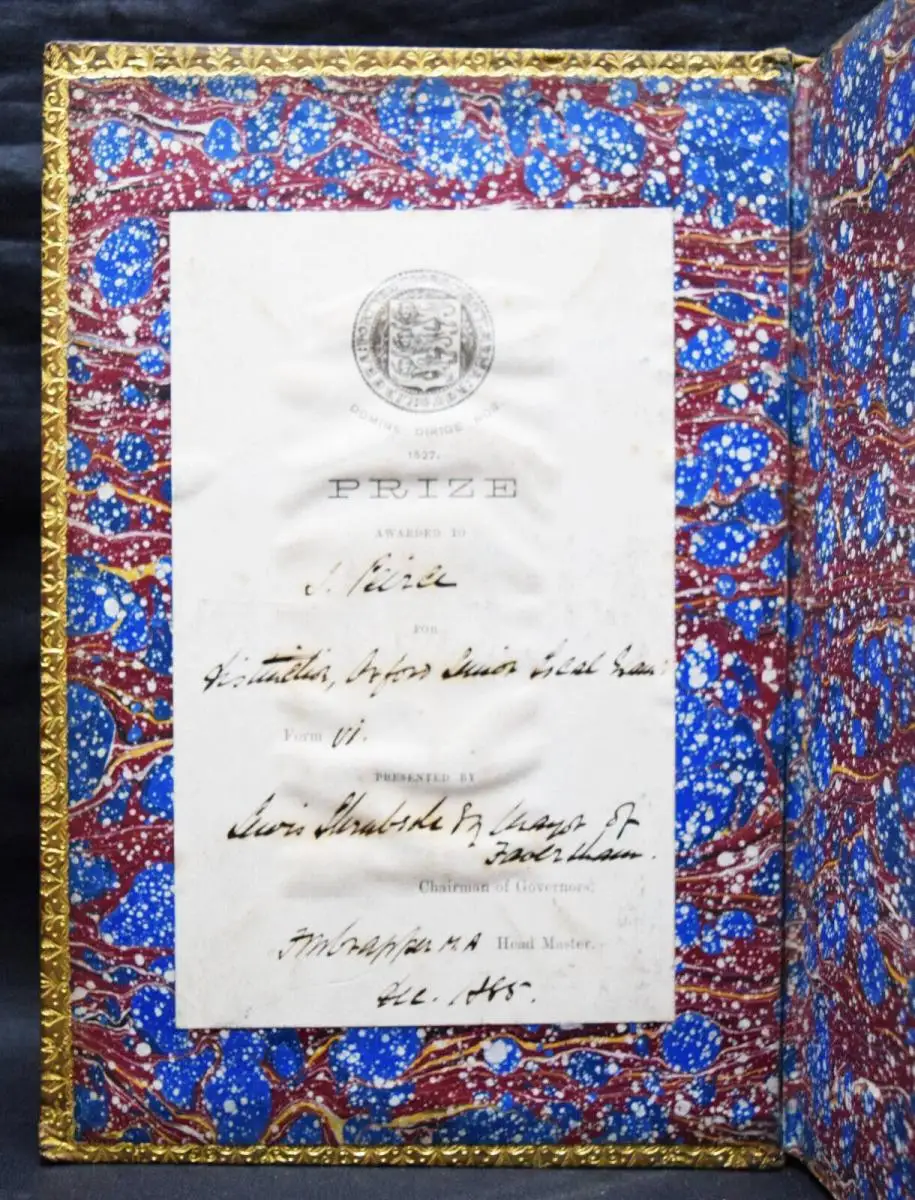 DOMINE DIRIGE NOS
1527.
PRIZE
AWARDED TO
J. Peirce
FOR
distinction, Oxford Senior Local Exam:
Form vi.
PRESENTED BY
Lewis Shrubsole Esq Mayor of
Faversham.
Chairman of Governors.
M.A Head Master.
Dec. 1885.